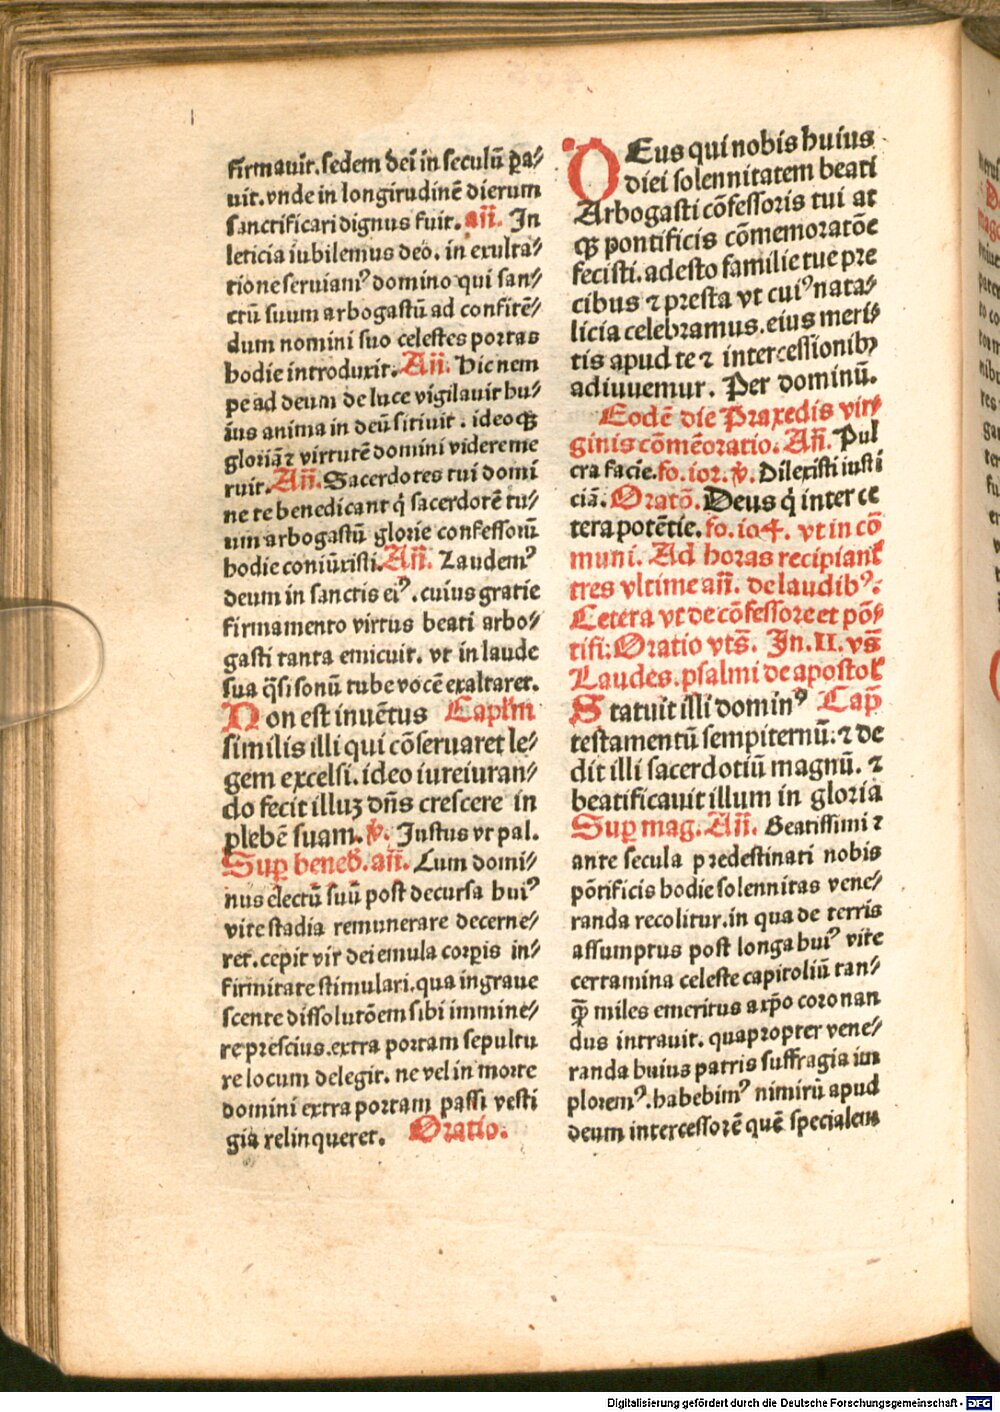 firmauit. sedem dei in seculū p̱a⸗
uit. vnde in longitudinē dierum
sanctificari dignus fuit. añ. In
leticia iubilemus deo. in exulta⸗
tione seruiamꝰ domino qui san⸗
ctū suum arbogastū ad confitē⸗
dum nomini suo celestes portas
hodie introduxit. Añ. Hic nem
pe ad deum de luce vigilauit hu⸗
iꝰus anima in deū sitiuit. ideoqꝫ
gloriā ⁊ virtutē domini videre me
ruit. Añ. Sacerdotes tui domi
ne te benedicant q̇ sacerdotē tu⸗
um arbogastū glorie confessorū
hodie coniūxisti. Añ. Laudemꝰ
deum in sanctis eiꝰ. cuius gratie
firmamento virtus beati arbo⸗
gasti tanta emicuit. vt in laude
sua q̄si sonū tube vocē exaltaret.
Non est inuētus Capl̄m
similis illi qui cōseruaret le⸗
gem excelsi. ideo iureiuran⸗
do fecit illuꝫ dn̄s crescere in
plebē suam. ℣. Justus vt pal.
Suꝑ bened̄. añ. Cum domi⸗
nus electū suū post decursa huiꝰ
vite stadia remunerare decerne⸗
ret. cepit vir dei emula corꝑis in⸗
firmitate stimulari. qua ingraue
scente dissolutōem sibi immine⸗
re prescius. extra portam sepultu
re locum delegit. ne vel in morte
domini extra portam passi vesti
gia relinqueret. Oratio.
DEus qui nobis huius
diei solennitatem beati
Arbogasti cōfessoris tui at
qꝫ pontificis cōmemoratōe
fecisti. adesto familie tue pre
cibus ⁊ presta vt cuiꝰ nata⸗
licia celebramus. eius meri⸗
tis apud te ⁊ intercessionibꝰ
adiuuemur. Per dominū.
Eodē die Praxedis vir⸗
ginis cōmēoratio. Añ. Pul
cra facie. fo. ior. ℣. Dilexisti iusti
ciā. Oratō. Deus q̇ inter ce
tera potētie. fo. io4. vt in cō
muni. Ad horas recipiant̄
tres vltime añ. de laudibꝰ:
Cetera vt de cōfessore et pō⸗
tifi: Oratio vts̄. In. II. vs̄
Laudes. psalmi de apostol̄
Statuit illi dominꝰ Cap̄
testamentū sempiternū: ⁊ de
dit illi sacerdotiū magnū. ⁊
beatificauit illum in gloria
Suꝑ mag. Añ. Beatissimi ⁊
ante secula predestinati nobis
pōtificis hodie solennitas vene⸗
randa recolitur. in qua de terris
assumptus post longa huiꝰ vite
certamina celeste capitoliū tan⸗
qȝ̄ miles emeritus a xp̄o coronan
dus intrauit. quapropter vene⸗
randa huius patris suffragia im
ploremꝰ. habebimꝰ nimirū apud
deum intercessorē quē specialem
Digitalisierung gefördert durch die Deutsche Forschungsgemeinschaft - DFG